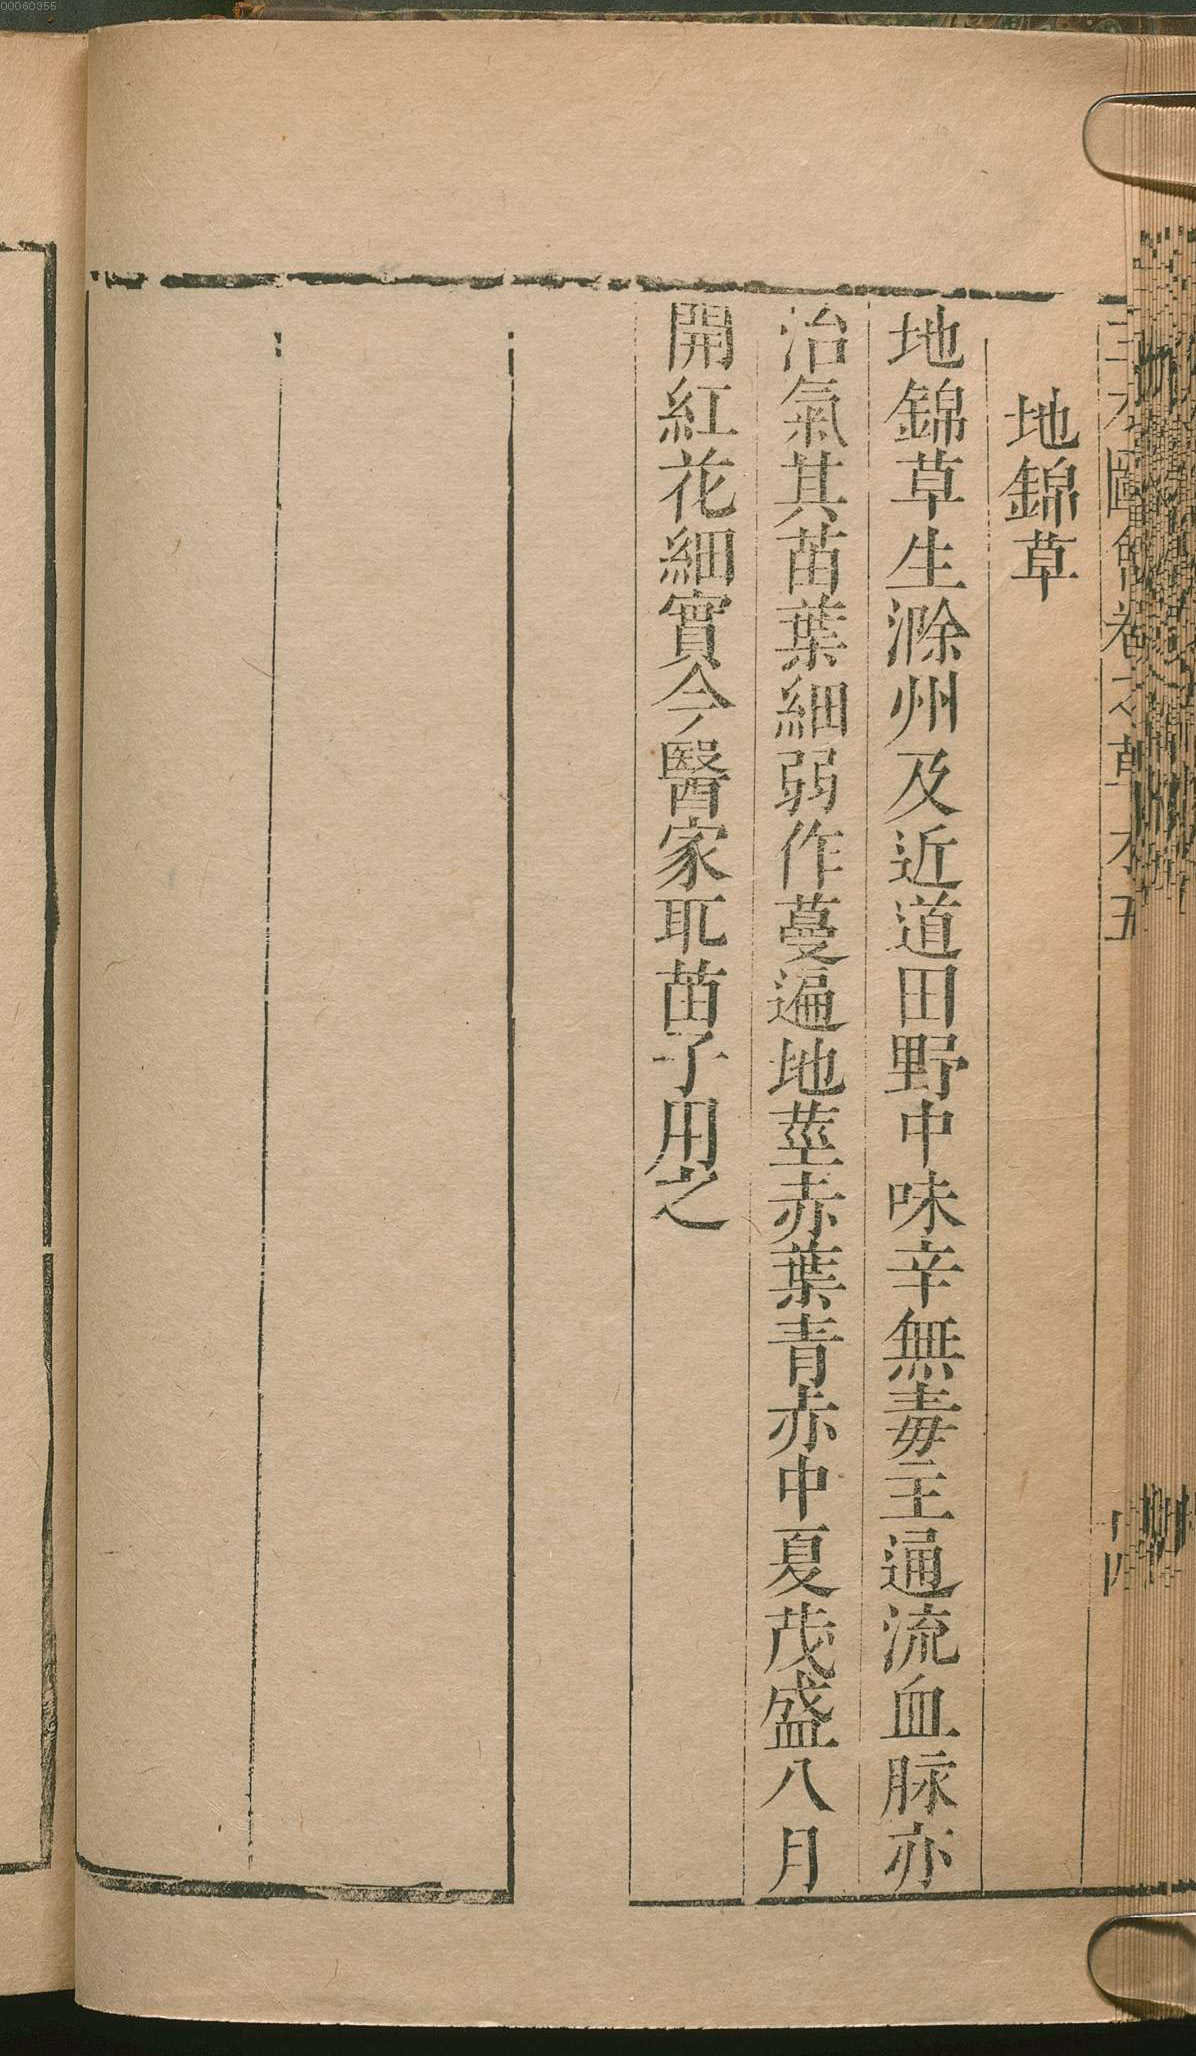 00060355
地錦草
地錦草生滁州及近道田野中味辛無毒主通流血脉亦
治氣其苗葉細弱作蔓遍地莖赤葉青赤中夏茂盛八月
開紅花細實今醫家取苗子用之